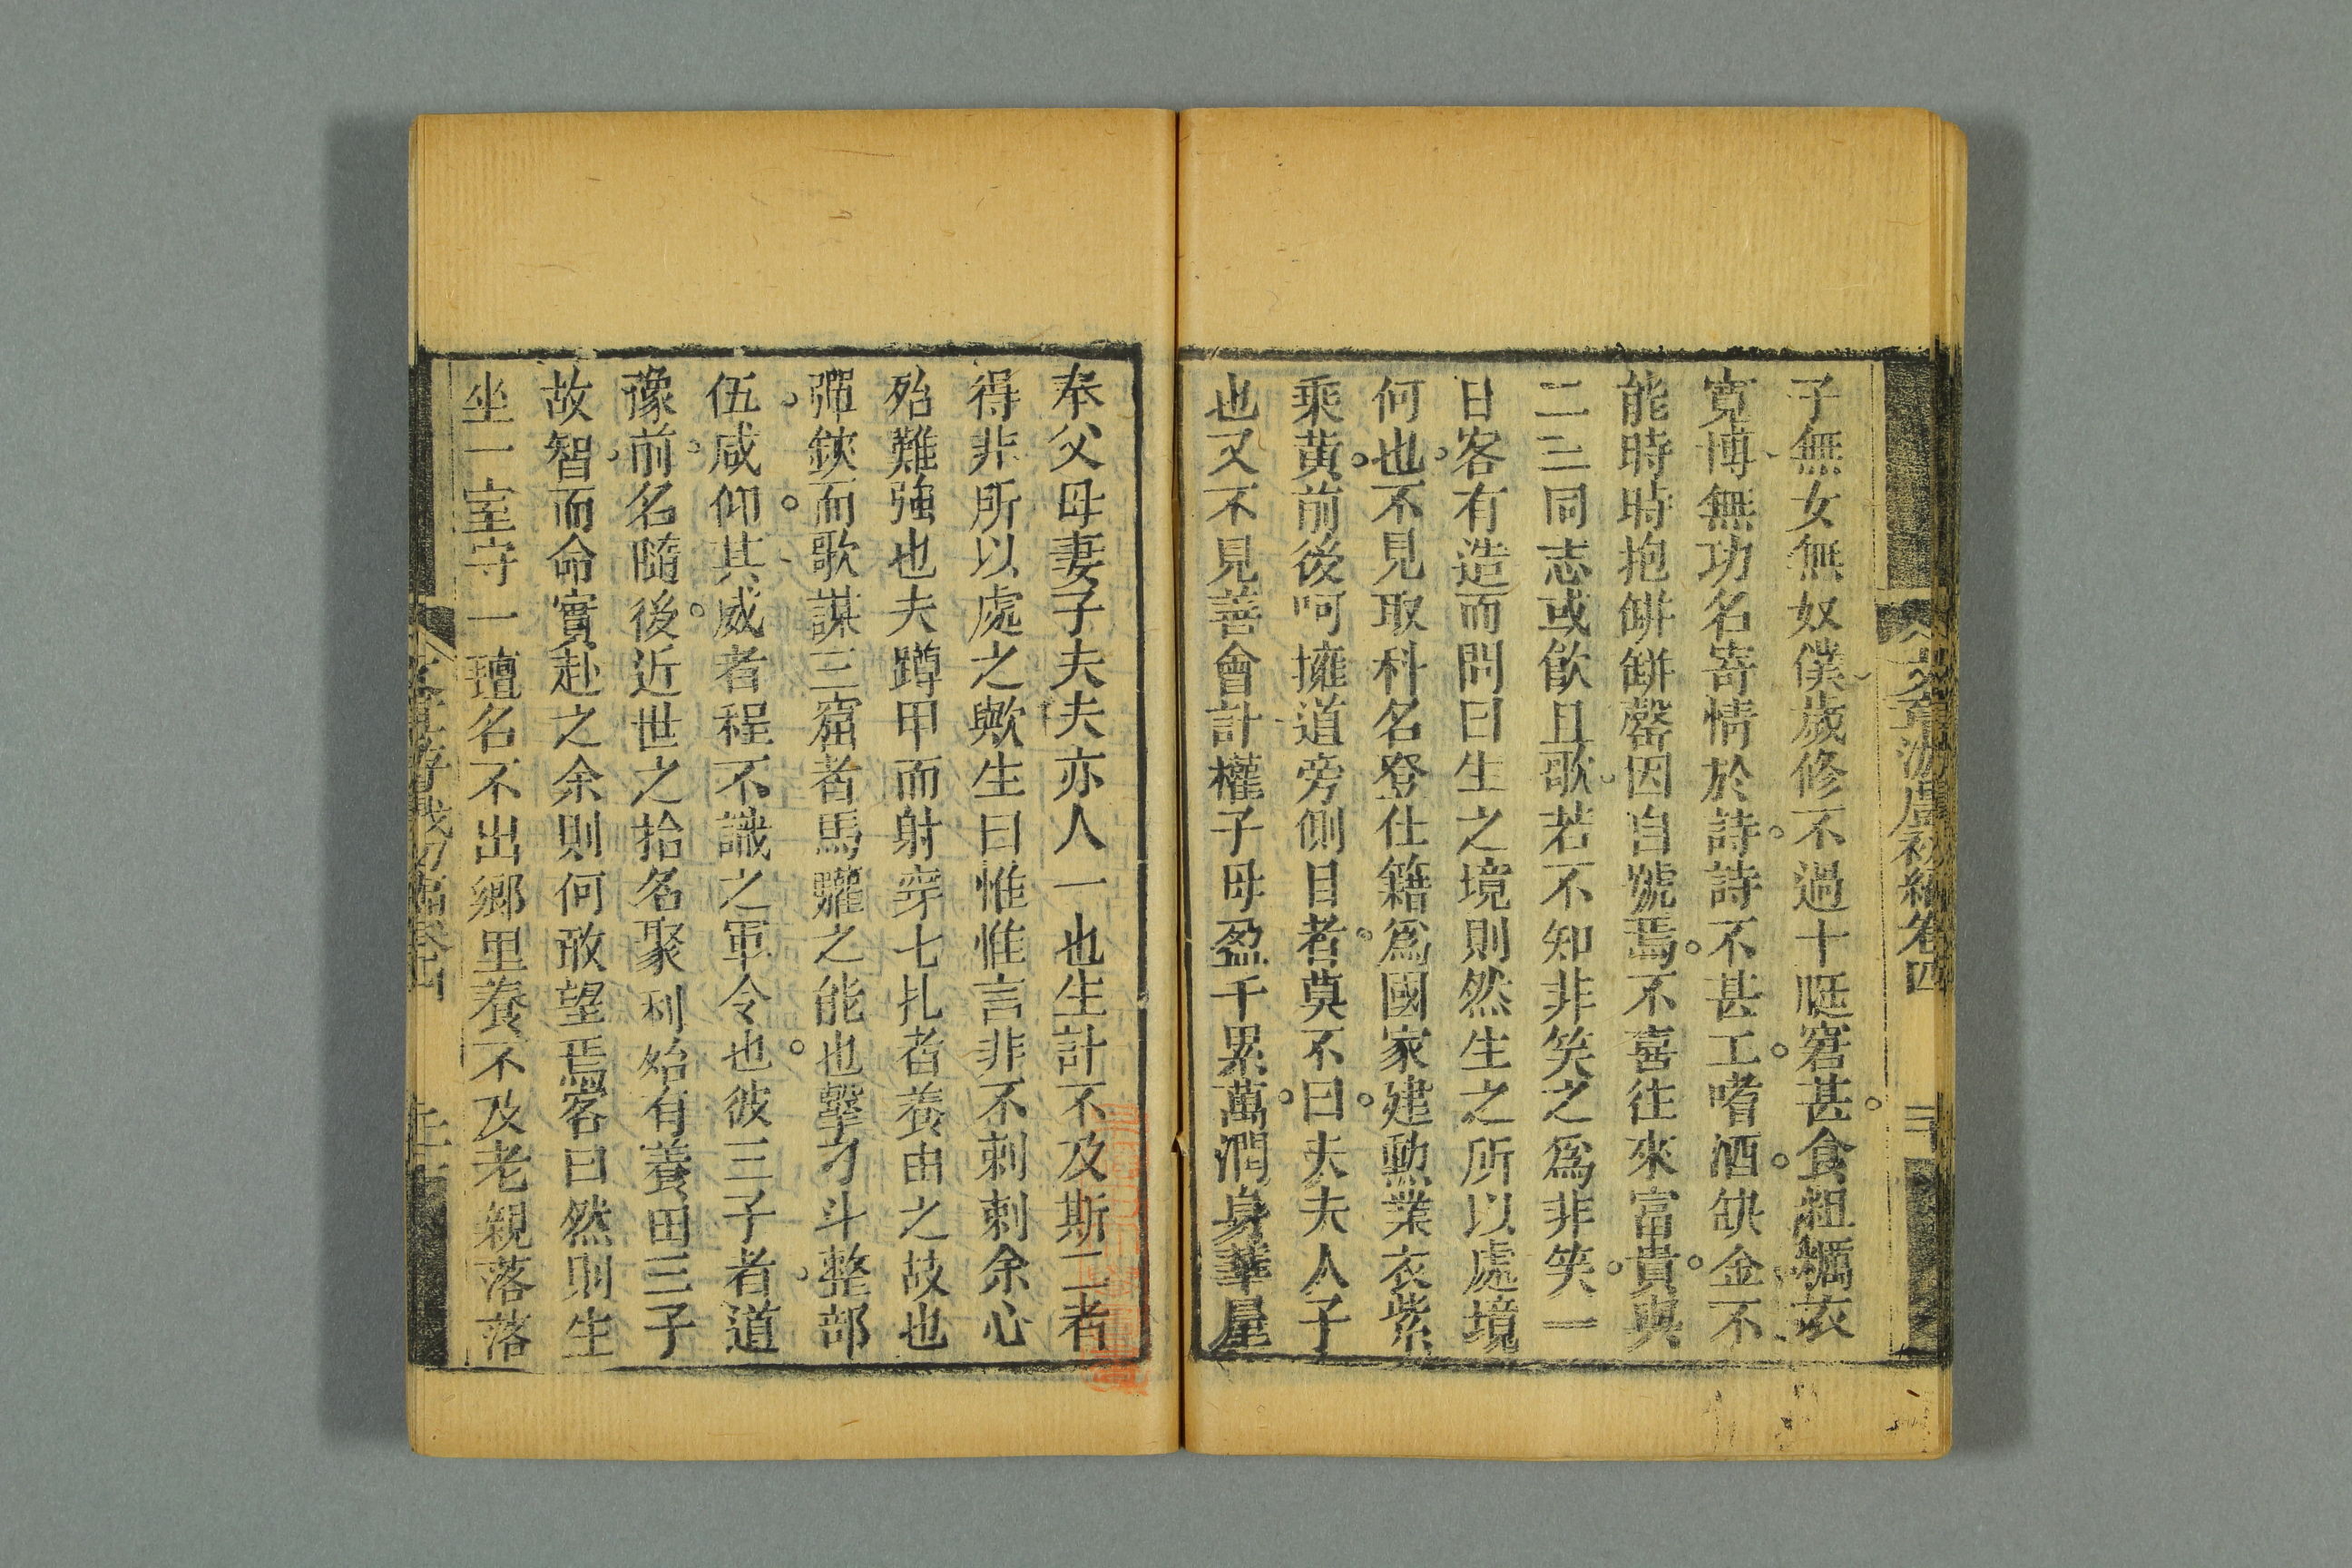 子無女無奴僕歲修不過十脡窘甚食粗糲衣
寬博無功名寄情於詩詩不甚工嗜酒缺金不
能時時抱缾缾罄因自號焉不喜往來富貴與
二三同志或飲且歌若不知非笑之爲非笑一
日客有造而問曰生之境則然生之所以處境
何也不見取科名登仕籍爲國家建勳業衣紫
乘黄前後呵擁道旁側目者莫不曰夫夫人子
也又不見善會計權子母盈千累萬潤身華屋
奉父母妻子夫夫亦人一也生計不及斯二者
得非所以處之歟生曰惟惟言非不刺刺余心
殆難強也夫蹲甲而射穿七扎者養由之故也
彈鋏而歌謀三窟者馬驩之能也擊刁斗整部
伍咸仰其威者程不識之軍令也彼三子者道
豫前名隨後近世之拾名聚利殆有養田三子
故智而命實赴之余則何敢望焉客曰然則生
坐一室守一壇名不出鄉里養不及老親落落